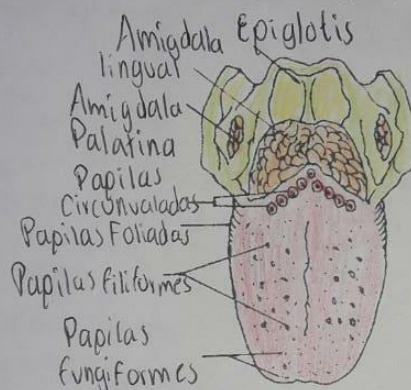 Amigdala
lingual
Epiglotis
Amigdala
Palatina
Papilas
Circunvaladas
Papilas Foliadas
Papilas filiformes
Papilas
fungiformes